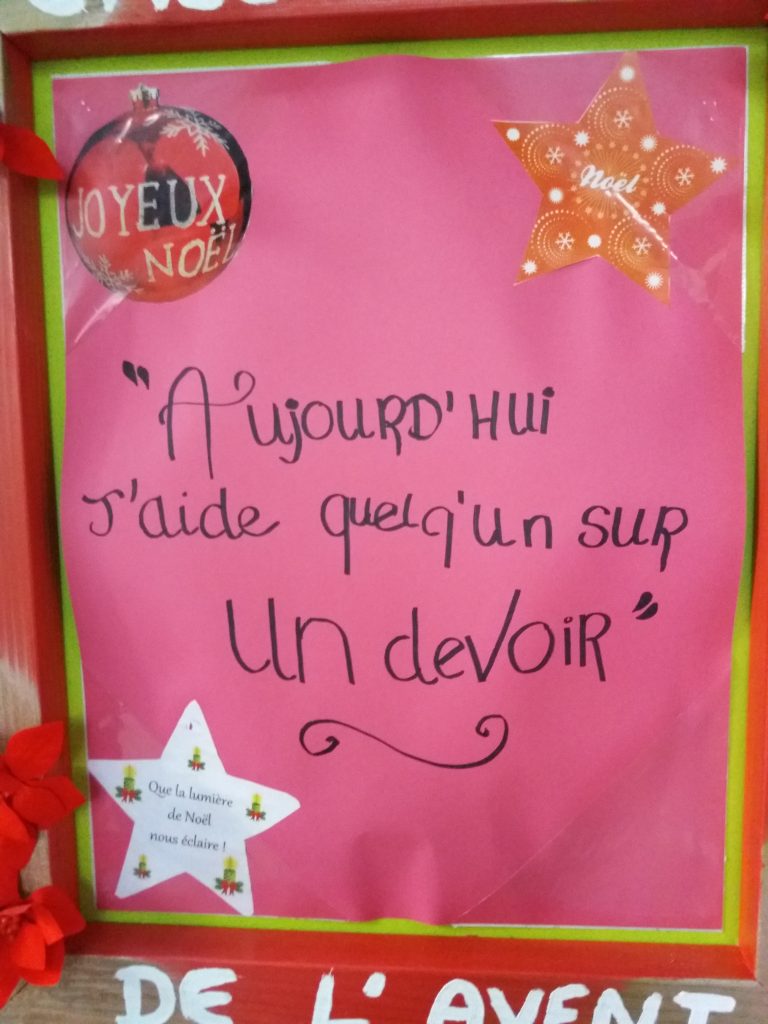 JOYEUX
NOËL
Noël
"Aujourd'hui
J'aide quelq'un sur
un devoir"
Que la lumière
de Noël
nous éclaire !
DE L'AVENT